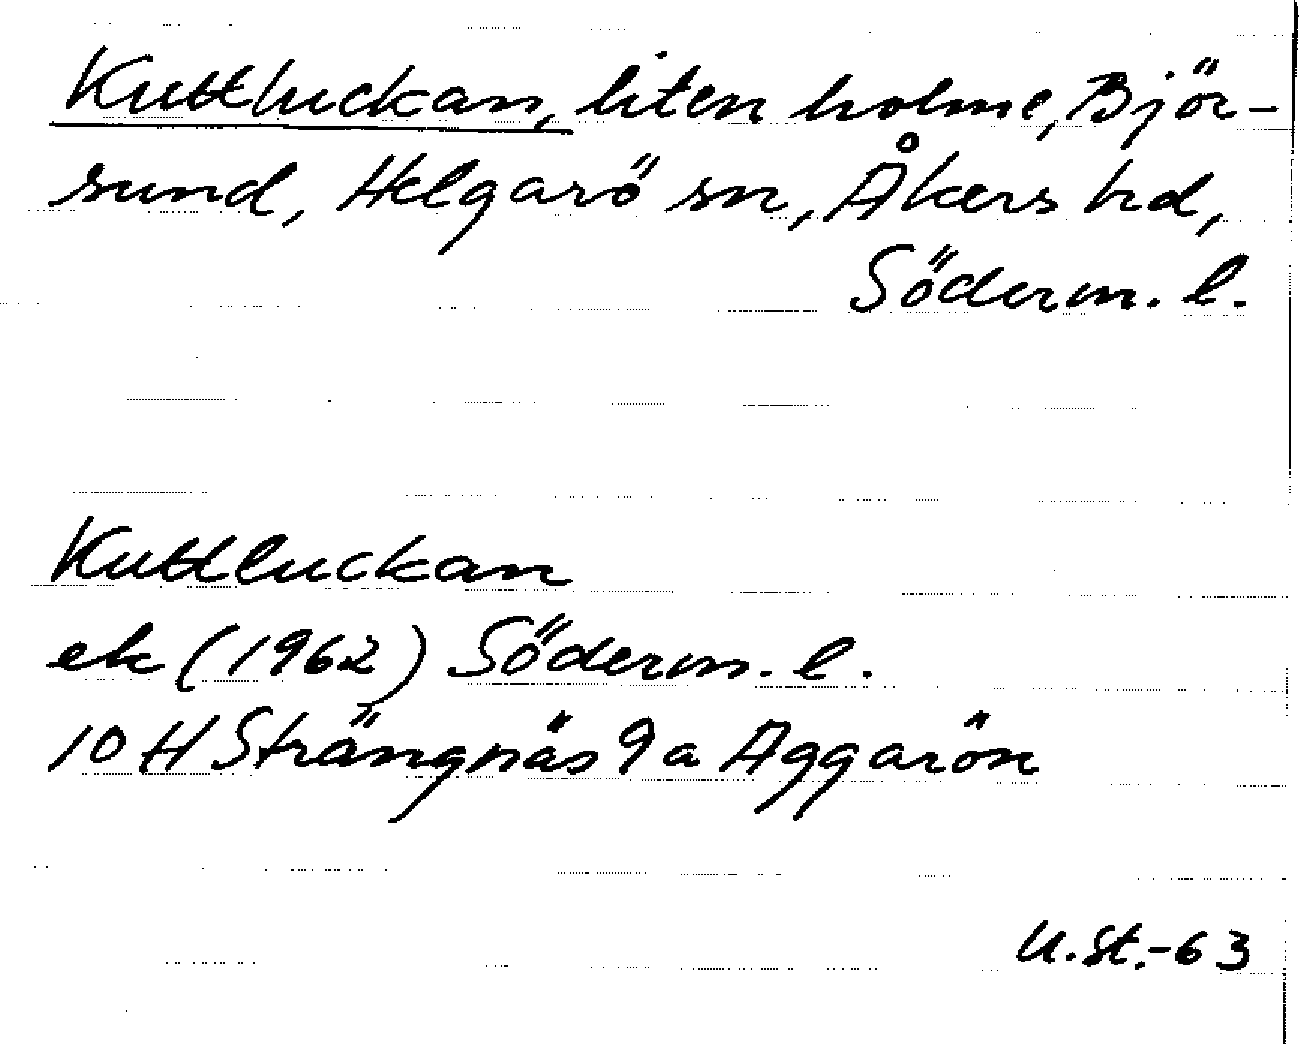 Kuttluckan, liten holme, Björ-
sund, Helgarö sn, Åkers hd,
Söderm. l.
Kuttluckan
ek (1962) Söderm. l.
10 H Strängnäs 9a Aggarön
U.St.-63